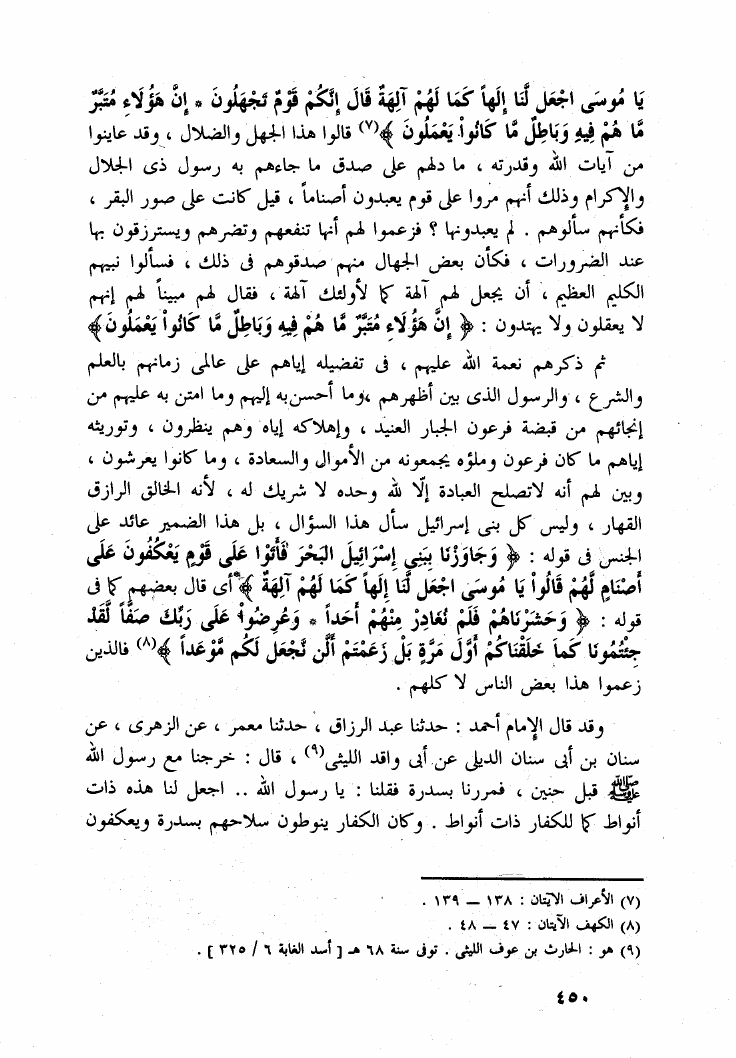 يَا مُوسَى اجْعَل لَّنَا إِلَهاً كَمَا لَهُمْ آلِهَةٌ قَالَ إِنَّكُمْ قَوْمٌ تَجْهَلُونَ * إِنَّ هَؤُلَاءِ مُتَبَّرٌ
مَّا هُمْ فِيهِ وَبَاطِلٌ مَّا كَانُواْ يَعْمَلُونَ ﴾(٧) قالوا هذا الجهل والضلال ، وقد عاينوا
من آيات الله وقدرته ، ما دلهم على صدق ما جاءهم به رسول ذى الجلال
والإكرام وذلك أنهم مروا على قوم يعبدون أصناماً ، قيل كانت على صور البقر ،
فكأنهم سألوهم . لم يعبدونها ؟ فزعموا لهم أنها تنفعهم وتضرهم ويسترزقون بها
عند الضرورات ، فكأن بعض الجهال منهم صدقوهم فى ذلك ، فسألوا نبيهم
الكليم العظيم ، أن يجعل لهم آلهة كما لأولئك آلهة ، فقال لهم مبيناً لهم إنهم
لا يعقلون ولا يهتدون : ﴿ إِنَّ هَؤُلَاءِ مُتَبَّرٌ مَّا هُمْ فِيهِ وَبَاطِلٌ مَّا كَانُواْ يَعْمَلُونَ ﴾
ثم ذكرهم نعمة الله عليهم ، فى تفضيله إياهم على عالمى زمانهم بالعلم
والشرع ، والرسول الذى بين أظهرهم ، وما أحسن به إليهم وما امتن به عليهم من
إنجائهم من قبضة فرعون الجبار العنيد ، وإهلاكه إياه وهم ينظرون ، وتوريثه
إياهم ما كان فرعون وملؤه يجمعونه من الأموال والسعادة ، وما كانوا يعرشون ،
وبين لهم أنه لاتصلح العبادة إلّا لله وحده لا شريك له ، لأنه الخالق الرازق
القهار ، وليس كل بنى إسرائيل سأل هذا السؤال ، بل هذا الضمير عائد على
الجنس فى قوله : ﴿ وَجَاوَزْنَا بِبَنِي إِسْرَائِيلَ الْبَحْرَ فَأَتَوْا عَلَى قَوْمٍ يَعْكُفُونَ عَلَى
أَصْنَامٍ لَّهُمْ قَالُواْ يَا مُوسَى اجْعَل لَّنَا إِلَهاً كَمَا لَهُمْ آلِهَةٌ ﴾ أى قال بعضهم كما فى
قوله : ﴿ وَحَشَرْنَاهُمْ فَلَمْ نُغَادِرْ مِنْهُمْ أَحَداً * وَعُرِضُواْ عَلَى رَبِّكَ صَفّاً لَّقَدْ
جِئْتُمُونَا كَمَا خَلَقْنَاكُمْ أَوَّلَ مَرَّةٍ بَلْ زَعَمْتُمْ أَلَّن نَّجْعَلَ لَكُم مَّوْعَداً ﴾(٨) فالذين
زعموا هذا بعض الناس لا كلهم .
وقد قال الإمام أحمد : حدثنا عبد الرزاق ، حدثنا معمر ، عن الزهرى ، عن
سنان بن أبى سنان الديلى عن أبى واقد الليثى(٩) ، قال : خرجنا مع رسول الله
ﷺ قبل حنين ، فمررنا بسدرة فقلنا : يا رسول الله .. اجعل لنا هذه ذات
أنواط كما للكفار ذات أنواط . وكان الكفار ينوطون سلاحهم بسدرة ويعكفون
(٧) الأعراف الآيتان : ١٣٨ — ١٣٩ .
(٨) الكهف الآيتان : ٤٧ — ٤٨ .
(٩) هو : الحارث بن عوف الليثى . توفى سنة ٦٨ هـ [ أسد الغابة ٦ / ٣٢٥ ] .
٤٥٠